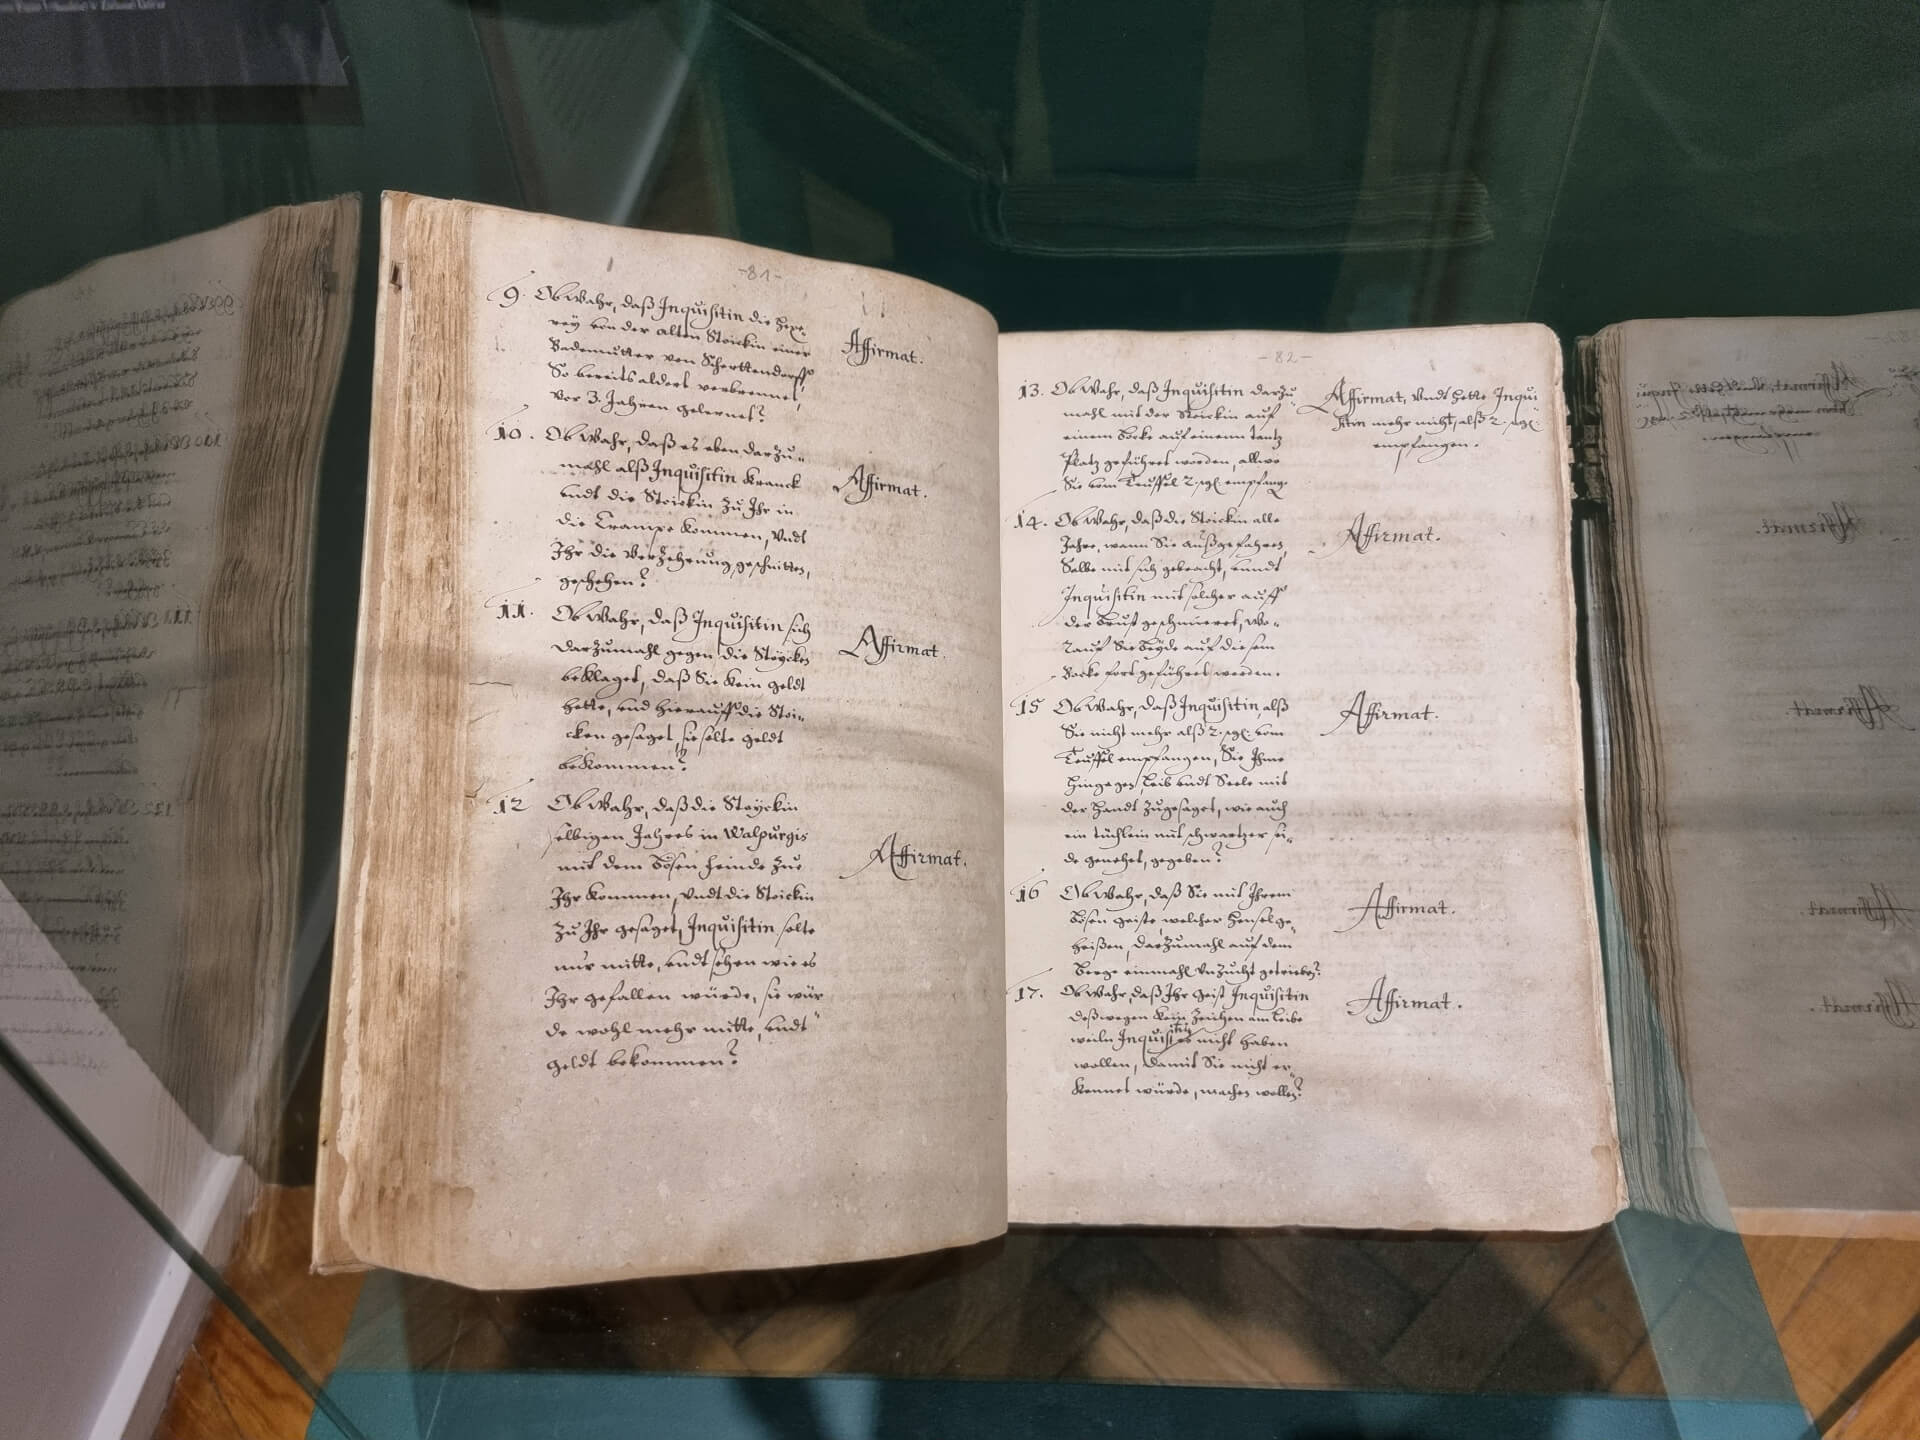 -81-
9. Ob Wahr, daß Inquisitin die Hexe-
rey von der alten Stoickin einer
Bademutter von Schertkendorff,
So bereits alders verbrennet,
vor 3. Jahren gelernet?
Affirmat.
10. Ob Wahr, daß es eben darzu-
mahl alß Inquisitin Kranck
undt die Stoickin Zu Ihr in
die Kommen, Undt
Ihr die VerZehrung geschnitten,
geschehen?
Affirmat.
11. Ob Wahr, daß Inquisitin sich
darzumahl gegen die Stoycken
beklaget, daß Sie Kein geldt
hette, und hierauff die Stoi-
cken gesaget, sie solte geldt
beKommen?
Affirmat.
12 Ob Wahr, daß die Stoyckin
selbigen Jahres in Walpurgis
mit dem Bösen feinde Zue
Ihr Kommen, Undt die Stoickin
Zu Ihr gesaget, Inquisitin solte
nur mitte, undt sehen wie es
Ihr gefallen würde, sie wür
de wohl mehr mitte, undt
geldt bekommen?
Affirmat.
-82-
13. Ob Wahr, daß Inquisitin darzu
mahl mit der Stoickin auf
einem Bocke auf einenn tantz
Platz geführet worden, allwo
Sie vom Teuffel 2. sgl. empfang.
Affirmat, Undt hette Inqui
sitin mehr nicht, alß 2. sgl.
empfangen.
14. Ob Wahr, daß die Stoickin alle
Jahre, wann Sie außgefahren,
Salbe mit sich gebracht, unndt
Inquisitin mit solcher auff
der Brust geschmieret, wo-
rauf Sie Beÿde auf diesem
Bocke fort geführet worden.
Affirmat.
15 Ob Wahr, daß Inquisitin, alß
Sie nicht mehr alß 2. sgl. vom
Teuffel empfangen, Sie Ihme
hingegen, Leib undt Seele mit
der Handt Zugesaget, wie auch
ein tüchlein mit schwartzer sei-
de genehet, gegeben?
Affirmat.
16 Ob Wahr, daß Sie mit Ihrem
Bösen geiste, welcher Hensel ge-
heißen, darZumahl auf dem
Berge einmahl UnZucht getrieben?
Affirmat.
17. Ob Wahr, daß Ihr Geist Inquisitin
deßwegen Kein Zeichen am Leibe
weiln Inquisitin nicht haben
wollen, damit Sie nicht er-
Kennet würde, machen wollen?
Affirmat.